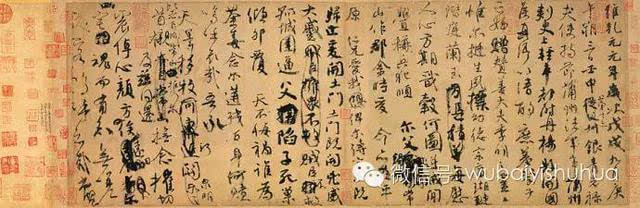 維乾元元年歲次戊戌九月庚
午朔三日壬申第十三叔銀青光祿
夫使持節蒲州諸軍事蒲州
刺史上輕車都尉丹陽縣開國
侯真卿以清酌庶羞祭于
亡姪贈贊善大夫季明之靈曰
惟爾挺生夙標幼德宗廟瑚璉
階庭蘭玉每慰
人心方期戩穀何圖逆賊閒
釁稱兵犯順爾父竭誠
常山作郡余時受命亦在平
原仁兄愛我俾爾傳言爾既
歸止爰開土門土門既開凶威
大蹙賊臣不救
孤城圍逼父陷子死巢
傾卵覆天不悔禍誰為
荼毒念爾遘殘百身何贖
嗚呼哀哉吾承
天澤移牧河關泉明
及茲同還
撫念摧切
震悼心顏方俟
魂而有知無嗟
微信号: wubaiyishuhua